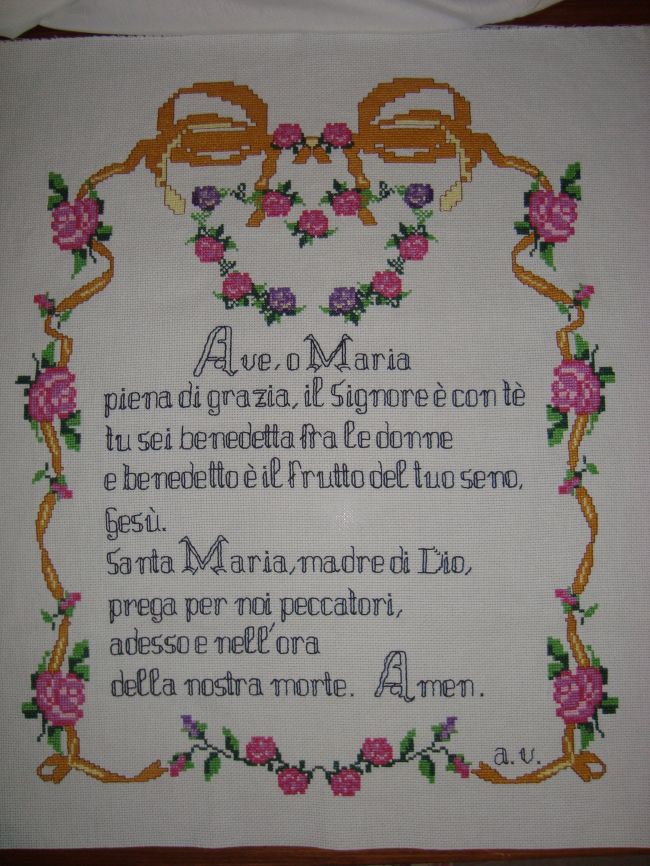 Ave, o Maria
piena di grazia, il Signore è con tè
tu sei benedetta fra le donne
e benedetto è il frutto del tuo seno,
Gesù.
Santa Maria, madre di Dio,
prega per noi peccatori,
adesso e nell'ora
della nostra morte. Amen.
a. v.